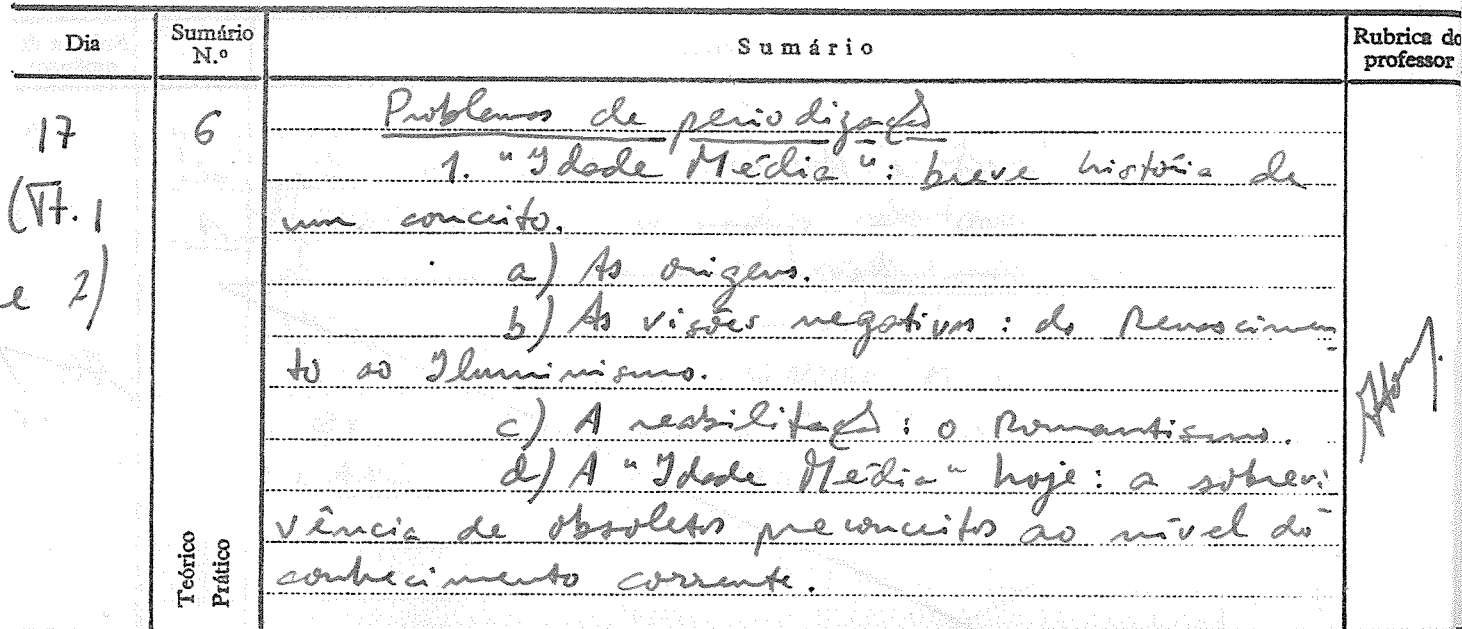 Dia
Sumário N.º
Sumário
Rubrica do professor
17
(T7. 1
e 2)
6
Problemas de periodização
1. "Idade Média": breve história de
um conceito.
a) As origens.
b) As visões negativas: do Renascimen-
to ao Iluminismo.
c) A reabilitação: o Romantismo.
d) A "Idade Média" hoje: a sobrevi-
vência de obsoletos preconceitos ao nível do
conhecimento corrente.
Teórico
Prático